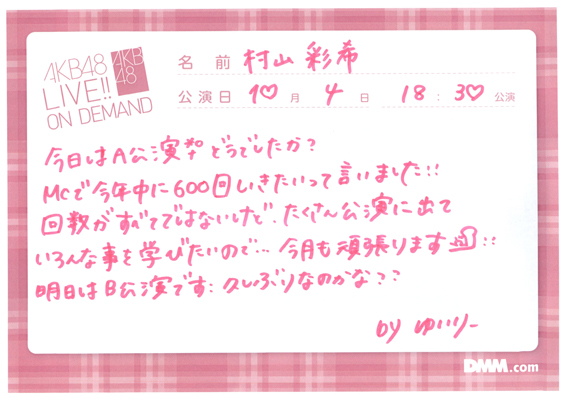 AKB48
LIVE!!
ON DEMAND
AKB
48
名前 村山 彩希
公演日 10月 4日 18:30 公演
今日はA公演 どうでしたか?
MCで今年中に600回いきたいって言いました!!
回数がすべてではないけど、たくさん公演に出て
いろんな事を学びたいので… 今月も頑張ります!!
明日はB公演です: 久しぶりなのかな??
by ゆいりー
DMM.com